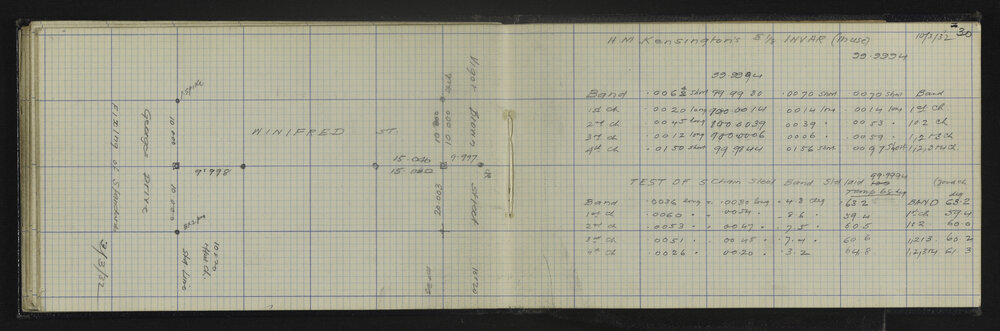 Fixing of Standards
3/3/32
Georges Drive
10.000
10.000
10 x 20
Hwd ch.
Skg Line
WINIFRED ST.
9.998
15.006
15.002
9.997
10.000
20.003
Vigor Brown Street
10 x 20
30
H M Kensington's 5 1/2 INVAR (in use) 10/3/32
99.9994
99.9994
Band .0070 short .0070 short Band
1st ch .0020 long 100.0014 .0014 long .0014 long 1st ch
2nd ch .0045 long 100.0039 .0039 " .0053 " 1 & 2 ch
3rd ch .0012 long 100.0006 .0006 " .0059 " 1, 2, & 3 ch
4th ch .0150 short 99.9844 .0156 short .0097 short 1, 2, 3 & 4 ch
TEST OF 5 Chain Steel Band Std laid 99.9994
Temp 68 deg
Band .0036 long .0030 long 4.8 deg 63.2 BAND 63.2
1st ch .0060 " .0054 " 8.6 " 59.4 1st ch 59.4
2nd ch .0053 " .0047 " 7.5 " 60.5 1 & 2 60.0
3rd ch .0051 " .0045 " 7.4 " 60.6 1, 2 & 3 60.2
4th ch .0026 " .0020 " 3.2 64.8 1, 2, 3 & 4 61.3